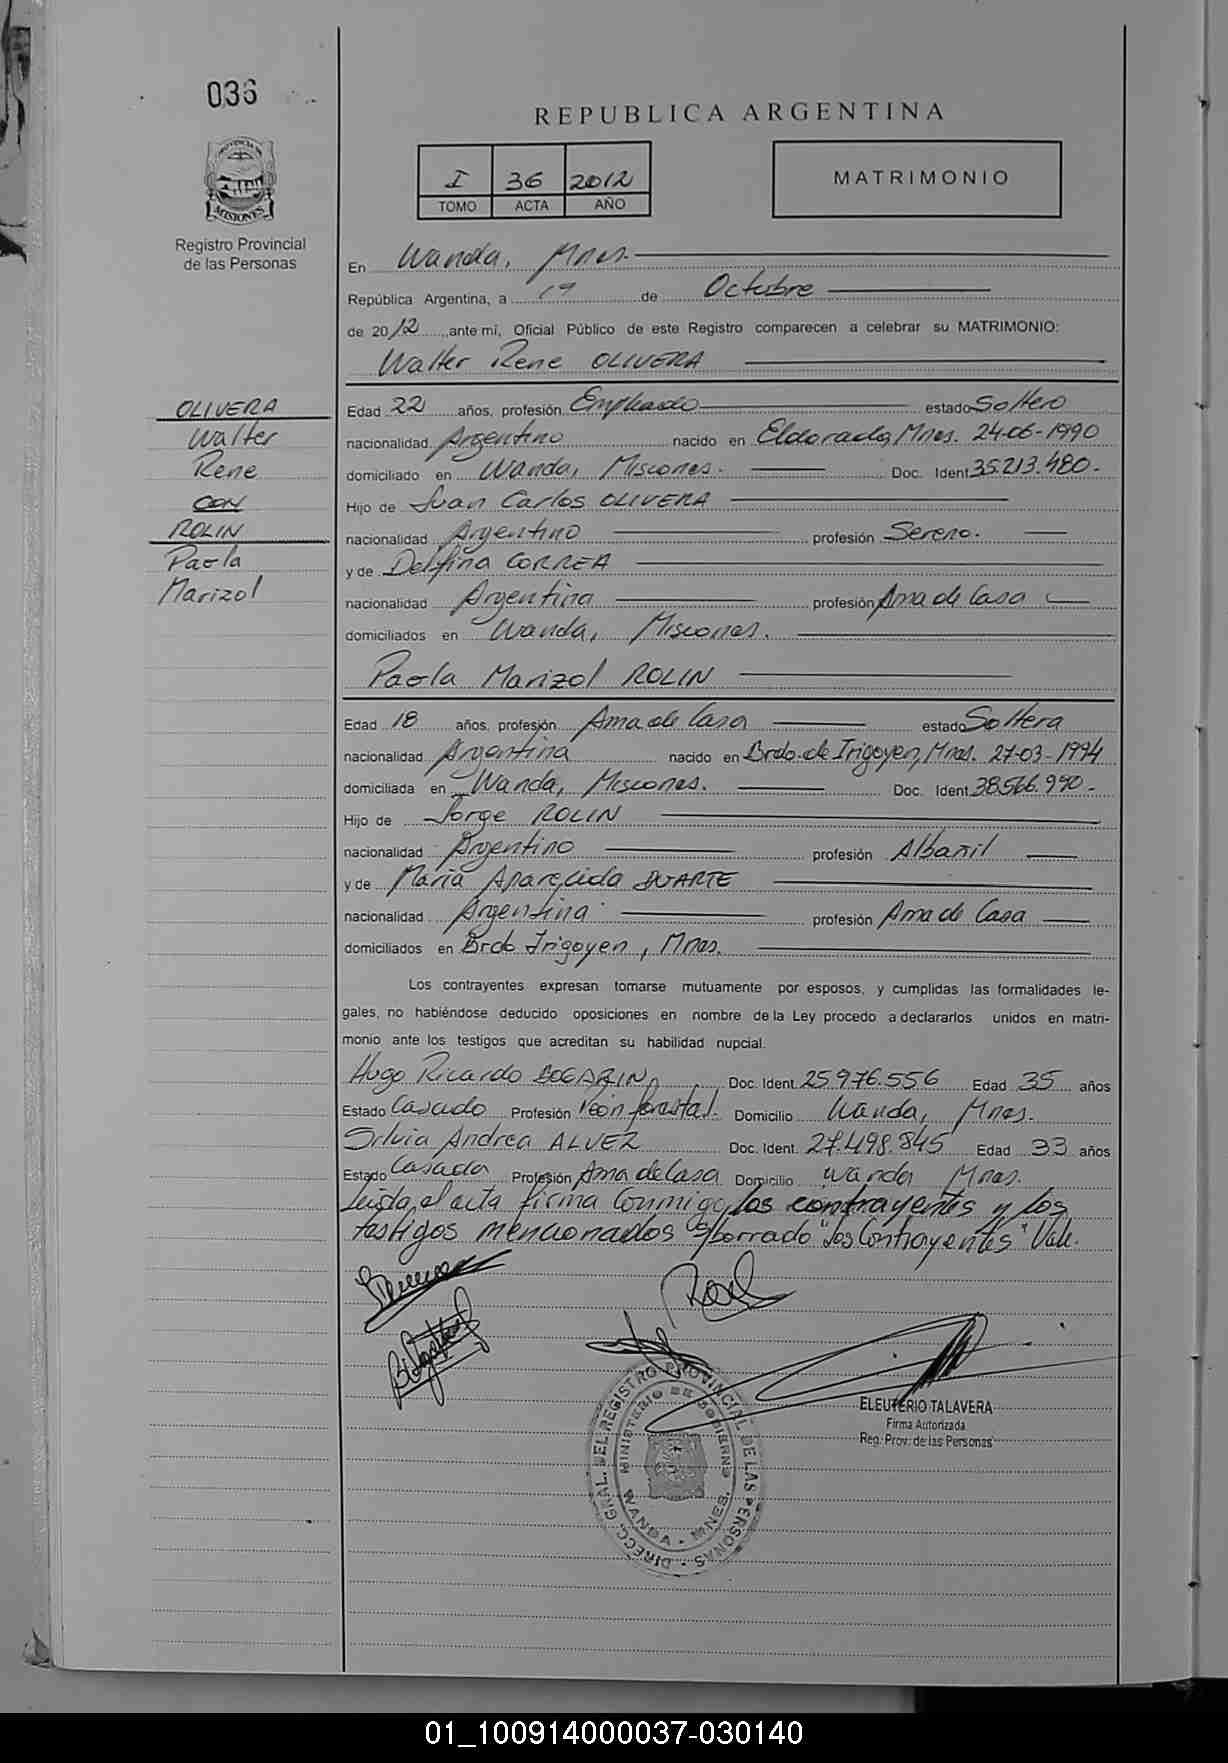 036
REPUBLICA ARGENTINA
PROVINCIA DE
MISIONES
Registro Provincial
de las Personas
I 36 2012
TOMO ACTA AÑO
MATRIMONIO
En Wanda, Mnes.
República Argentina, a 19 de Octubre
de 2012, ante mí, Oficial Público de este Registro comparecen a celebrar su MATRIMONIO:
Walter Rene OLIVERA
OLIVERA
Walter
Rene
CON
ROLIN
Paola
Marizol
Edad 22 años, profesión Empleado estado Soltero
nacionalidad Argentino nacido en Eldorado, Mnes. 24-06-1990
domiciliado en Wanda, Misiones. Doc. Ident 35.213.480.-
Hijo de Juan Carlos OLIVERA
nacionalidad Argentino profesión Sereno.
y de Delfina CORREA
nacionalidad Argentina profesión Ama de Casa
domiciliados en Wanda, Misiones.
Paola Marizol ROLIN
Edad 18 años, profesión Ama de Casa estado Soltera
nacionalidad Argentina nacido en Brdo. de Irigoyen, Mnes. 27-03-1994
domiciliada en Wanda, Misiones. Doc. Ident 38.566.990.-
Hijo de Jorge ROLIN
nacionalidad Argentino profesión Albañil
y de Maria Aparecida DUARTE
nacionalidad Argentina profesión Ama de Casa
domiciliados en Brdo Irigoyen, Mnes.
Los contrayentes expresan tomarse mutuamente por esposos, y cumplidas las formalidades le-
gales, no habiéndose deducido oposiciones en nombre de la Ley procedo a declararlos unidos en matri-
monio ante los testigos que acreditan su habilidad nupcial.
Hugo Ricardo BOGARIN Doc. Ident. 25.976.556 Edad 35 años
Estado Casado Profesión Peón forestal. Domicilio Wanda, Mnes.
Silvia Andrea ALVEZ Doc. Ident. 27.498.845 Edad 33 años
Estado Casada Profesión Ama de Casa Domicilio Wanda Mnes.
Leída el acta firma conmigo los contrayentes y los
testigos mencionados S/borrado "los Contrayentes" Vale.
ELEUTERIO TALAVERA
Firma Autorizada
Reg. Prov. de las Personas
DIRECC. GRAL. DEL REGISTRO PROVINCIAL DE LAS PERSONAS
MINISTERIO DE GOBIERNO
WANDA - MNES.
01_100914000037-030140